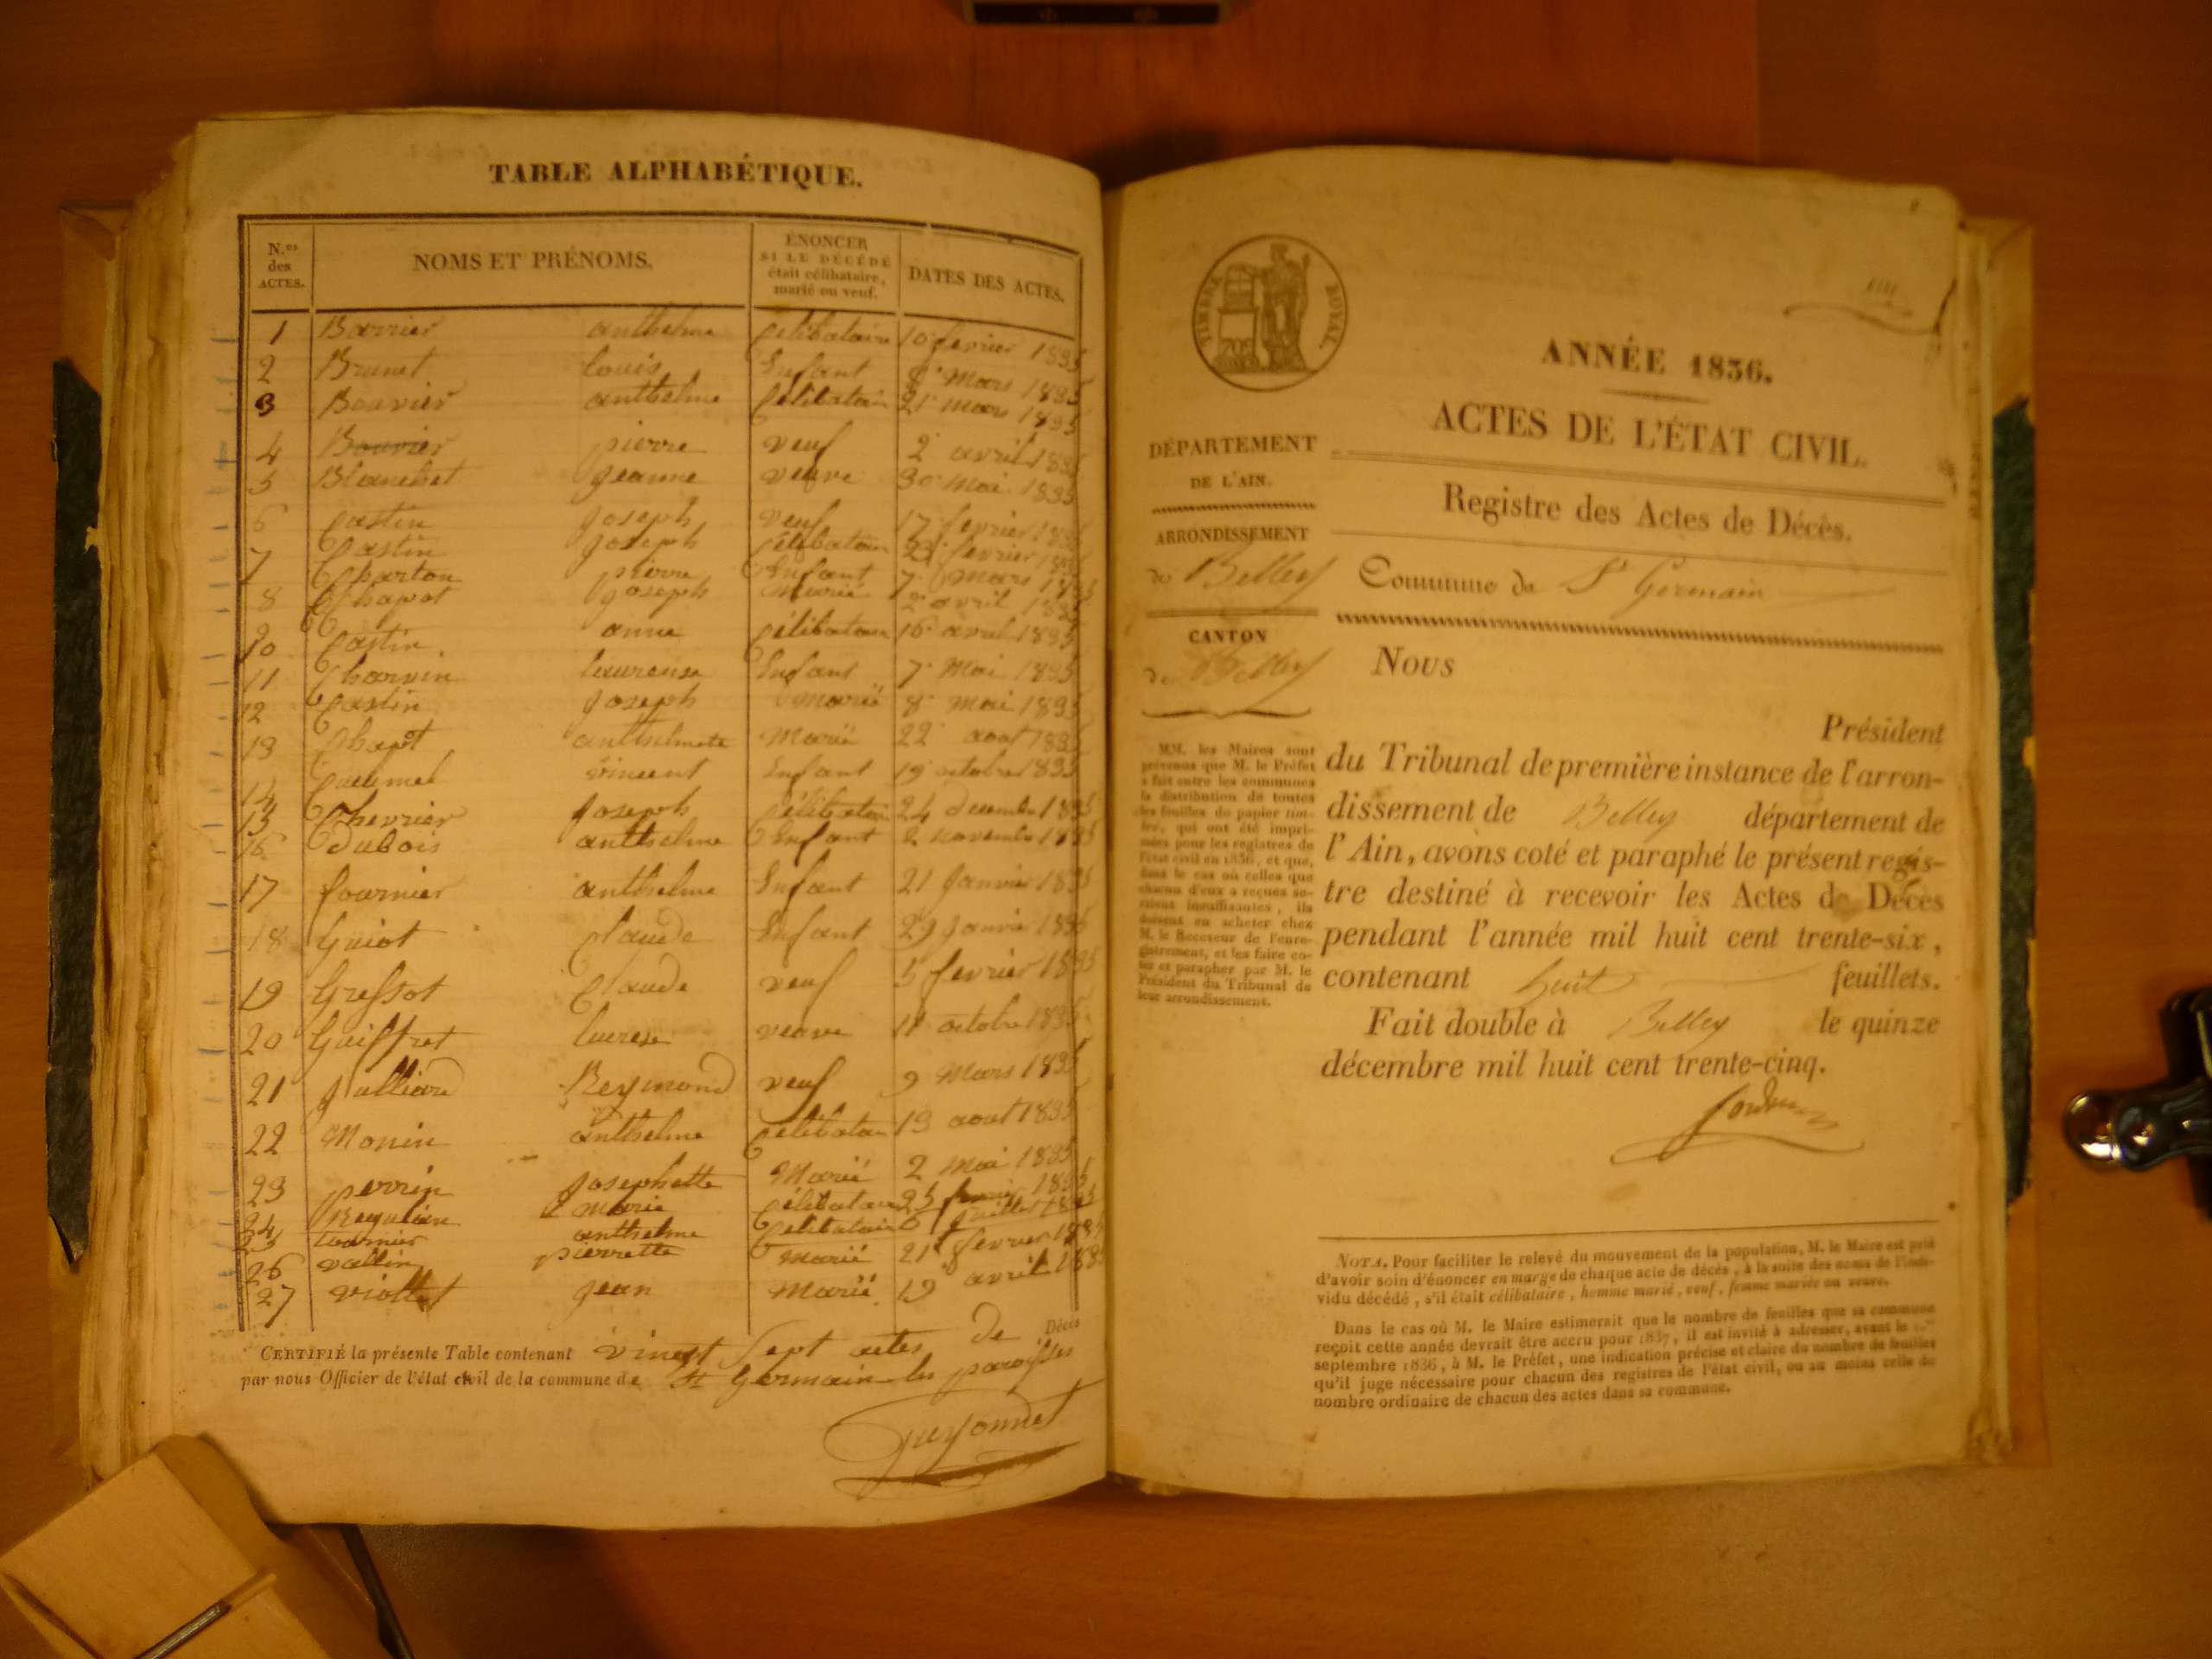 TABLE ALPHABÉTIQUE.
N.os des ACTES. NOMS ET PRÉNOMS. ÉNONCER SI LE DÉCÉDÉ était célibataire, marié ou veuf. DATES DES ACTES.
1 Barrier anthelme Celibataire 10 fevrier 1835
2 Brunet louis Enfant 8 Mars 1835
3 Bouvier anthelme Célibatain 21 mars 1835
4 Bouvier pierre veuf 2 avril 1835
5 Blanchet Jeanne veuve 30 Mai 1835
6 Castin Joseph veuf 17 fevrier 1835
7 Castin Joseph Célibatain fevrier 1835
Charton pierre Enfant 7 Mars 1835
8 Chapot Joseph Marié 2 avril 1835
10 Castin anne Célibatain 16 avril 1835
11 Charvin laurense Enfant 7 Mai 1835
12 Castin Joseph Marié 8 mai 1835
13 Chapot anthelmete Marié 22 aout 1835
14 vincent Enfant 19 octobre 1835
15 Chevrier Joseph Célibatain 24 decembre 1835
16 Dubois anthelme Enfant 2 novembre 1835
17 fournier anthelme Enfant 21 Janvier 1835
18 Guiot Claude Enfant 29 Janvier 1835
19 Gressot Claude veuf 5 fevrier 1835
20 Guiffret lucrese veuve 18 octobre 1835
21 Julliard Reymond veuf 9 Mars 1835
22 Monin anthelme Celibatain 19 aout 1835
23 perrin Josephette Marié 2 Mai 1835
24 Marie Célibataire 25
25 tournier anthelme Celibatain 6 Juillet 1835
26 vallin pierrette Marié 21 fevrier 1835
27 viollet Jean Marié 19 avril 1835
CERTIFIÉ la présente Table contenant vinegt Sept actes de Décès
par nous Officier de l'état civil de la commune de St Germain les paroisses
Guyonnet
TIMBRE ROYAL.
ANNÉE 1836.
ACTES DE L'ÉTAT CIVIL.
Registre des Actes de Décès.
Commune de St Germain
DÉPARTEMENT
DE L'AIN.
ARRONDISSEMENT
de Belley
CANTON
de Belley
MM. les Maires sont
prévenus que M. le Préfet
a fait entre les communes
la distribution de toutes
les feuilles de papier tim-
bré, qui ont été impri-
mées pour les registres de
l'état civil en 1836, et que,
dans le cas où celles que
chacun d'eux a reçues se-
raient insuffisantes, ils
doivent en acheter chez
M. le Receveur de l'enre-
gistrement, et les faire co-
ter et parapher par M. le
Président du Tribunal de
leur arrondissement.
Nous
Président
du Tribunal de première instance de l'arron-
dissement de Belley département de
l'Ain, avons coté et paraphé le présent regis-
tre destiné à recevoir les Actes de Décès
pendant l'année mil huit cent trente-six,
contenant huit feuillets.
Fait double à Belley le quinze
décembre mil huit cent trente-cinq.
NOTA. Pour faciliter le relevé du mouvement de la population, M. le Maire est prié
d'avoir soin d'énoncer en marge de chaque acte de décès, à la suite des noms de l'indi-
vidu décédé, s'il était célibataire, homme marié, veuf, femme mariée ou veuve.
Dans le cas où M. le Maire estimerait que le nombre de feuilles que sa commune
reçoit cette année devrait être accru pour 1837, il est invité à adresser, avant le 1.er
septembre 1836, à M. le Préfet, une indication précise et claire du nombre de feuilles
qu'il juge nécessaire pour chacun des registres de l'état civil, ou au moins celle du
nombre ordinaire de chacun des actes dans sa commune.